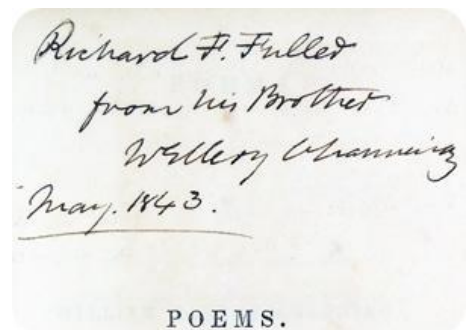 Richard F. Fuller
from his Brother
W Ellery Channing
May. 1843.
POEMS.